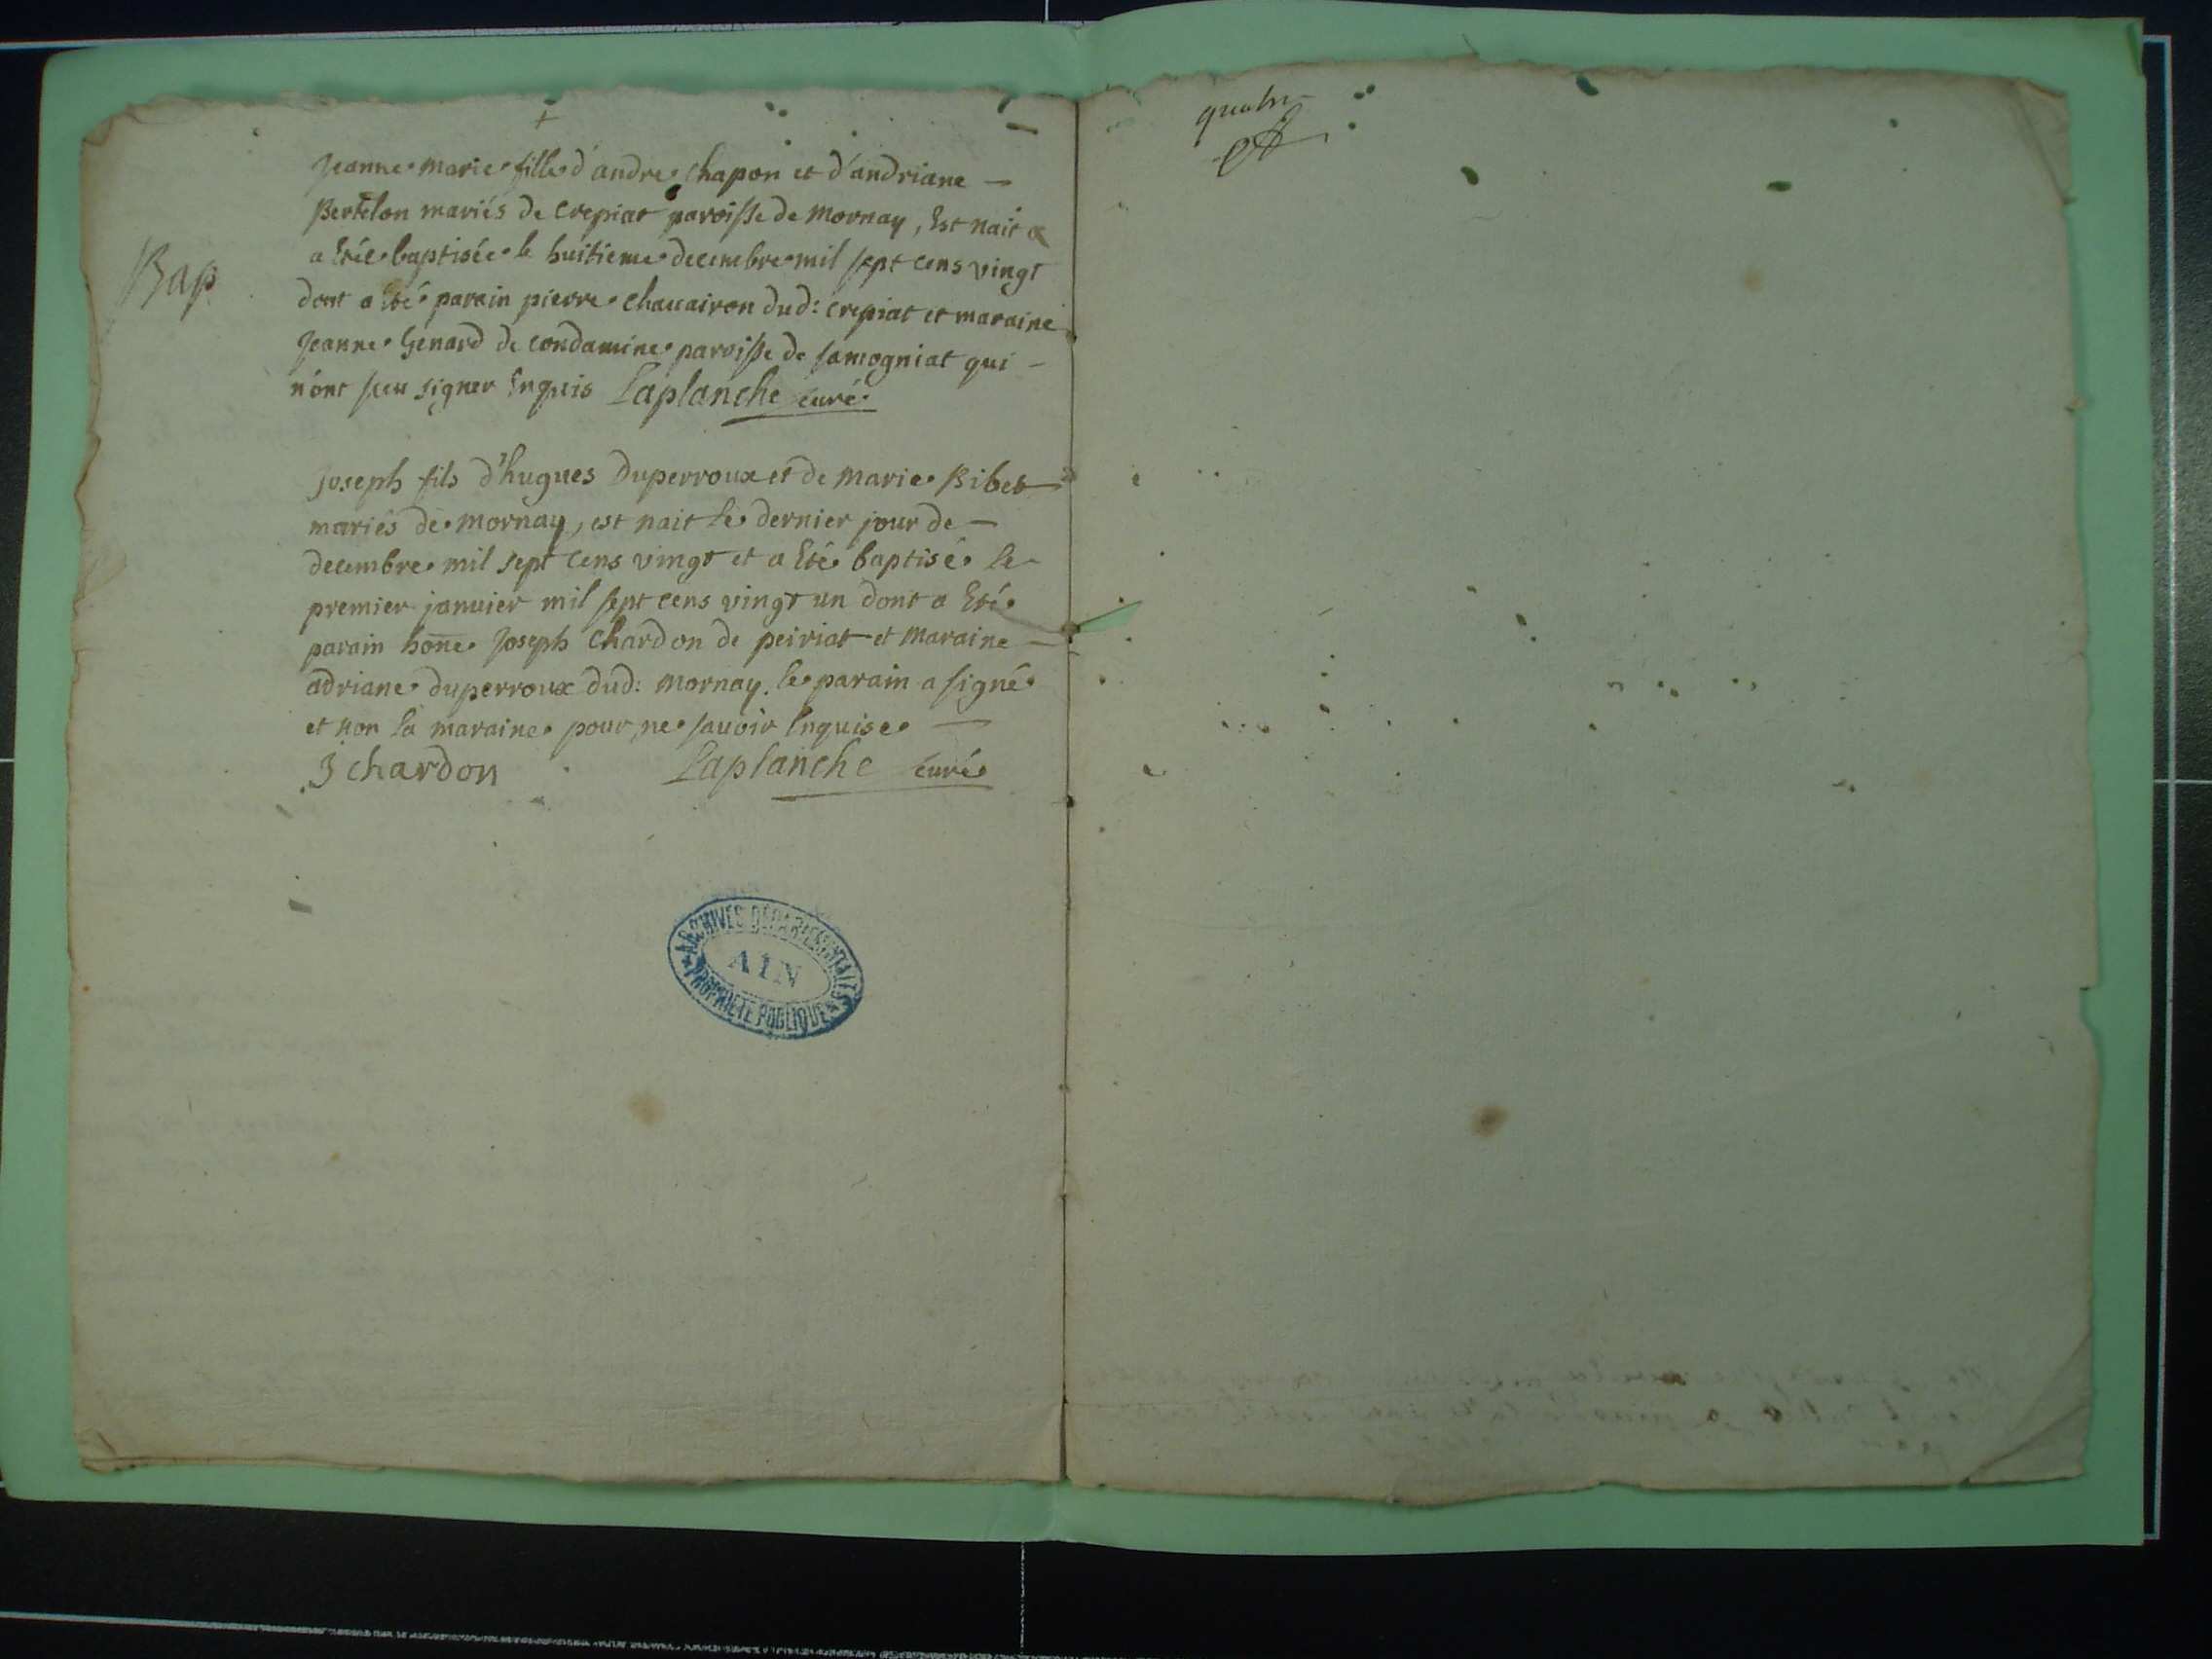 Jeanne Marie fille d'andre chapon et d'andriane
Bertelon mariés de crepiat paroisse de Mornay, Est nait &
a Etée baptisée le huitieme decembre mil sept cens vingt
Bap
dont a Eté parain pierre chauairon dud: crepiat et maraine
Jeanne Genard de condamine paroisse de samogniat qui
n'ont sceu signer Enquis Laplanche curé
Joseph fils d'hugues Duperroux et de Marie Bibet
mariés de Mornay, est nait le dernier jour de
decembre mil sept cens vingt et a Eté baptisé le
premier januier mil sept cens vingt un dont a Eté
parain honne Joseph Chardon de peiriat et Maraine
adriane duperroux dud: Mornay. le parain a signé
et non la maraine pour ne sauoir Enquise
J chardon Laplanche curé
ARCHIVES DÉPARTEMENTALES
AIN
PROPRIÉTÉ PUBLIQUE
quatre